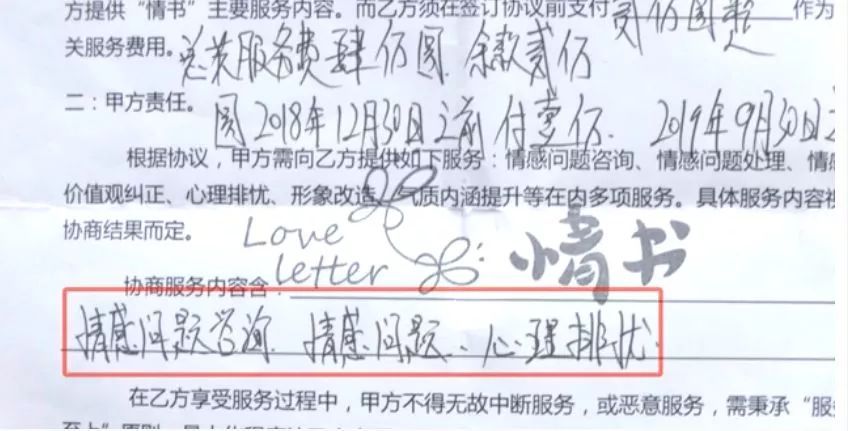 方提供“情书”主要服务内容。而乙方须在签订协议前支付贰佰圆整作为
关服务费用。总共服务费肆佰圆.余款贰佰
二：甲方责任。
圆2018年12月30日之前付壹佰. 2019年9月30日之
根据协议，甲方需向乙方提供如下服务：情感问题咨询、情感问题处理、情感
价值观纠正、心理排忧、形象改造、气质内涵提升等在内多项服务。具体服务内容视
协商结果而定。
Love
letter
小情书
协商服务内容含：
情感问题咨询、情感问题、心理排忧.
在乙方享受服务过程中，甲方不得无故中断服务，或恶意服务，需秉承“服务
至上”原则